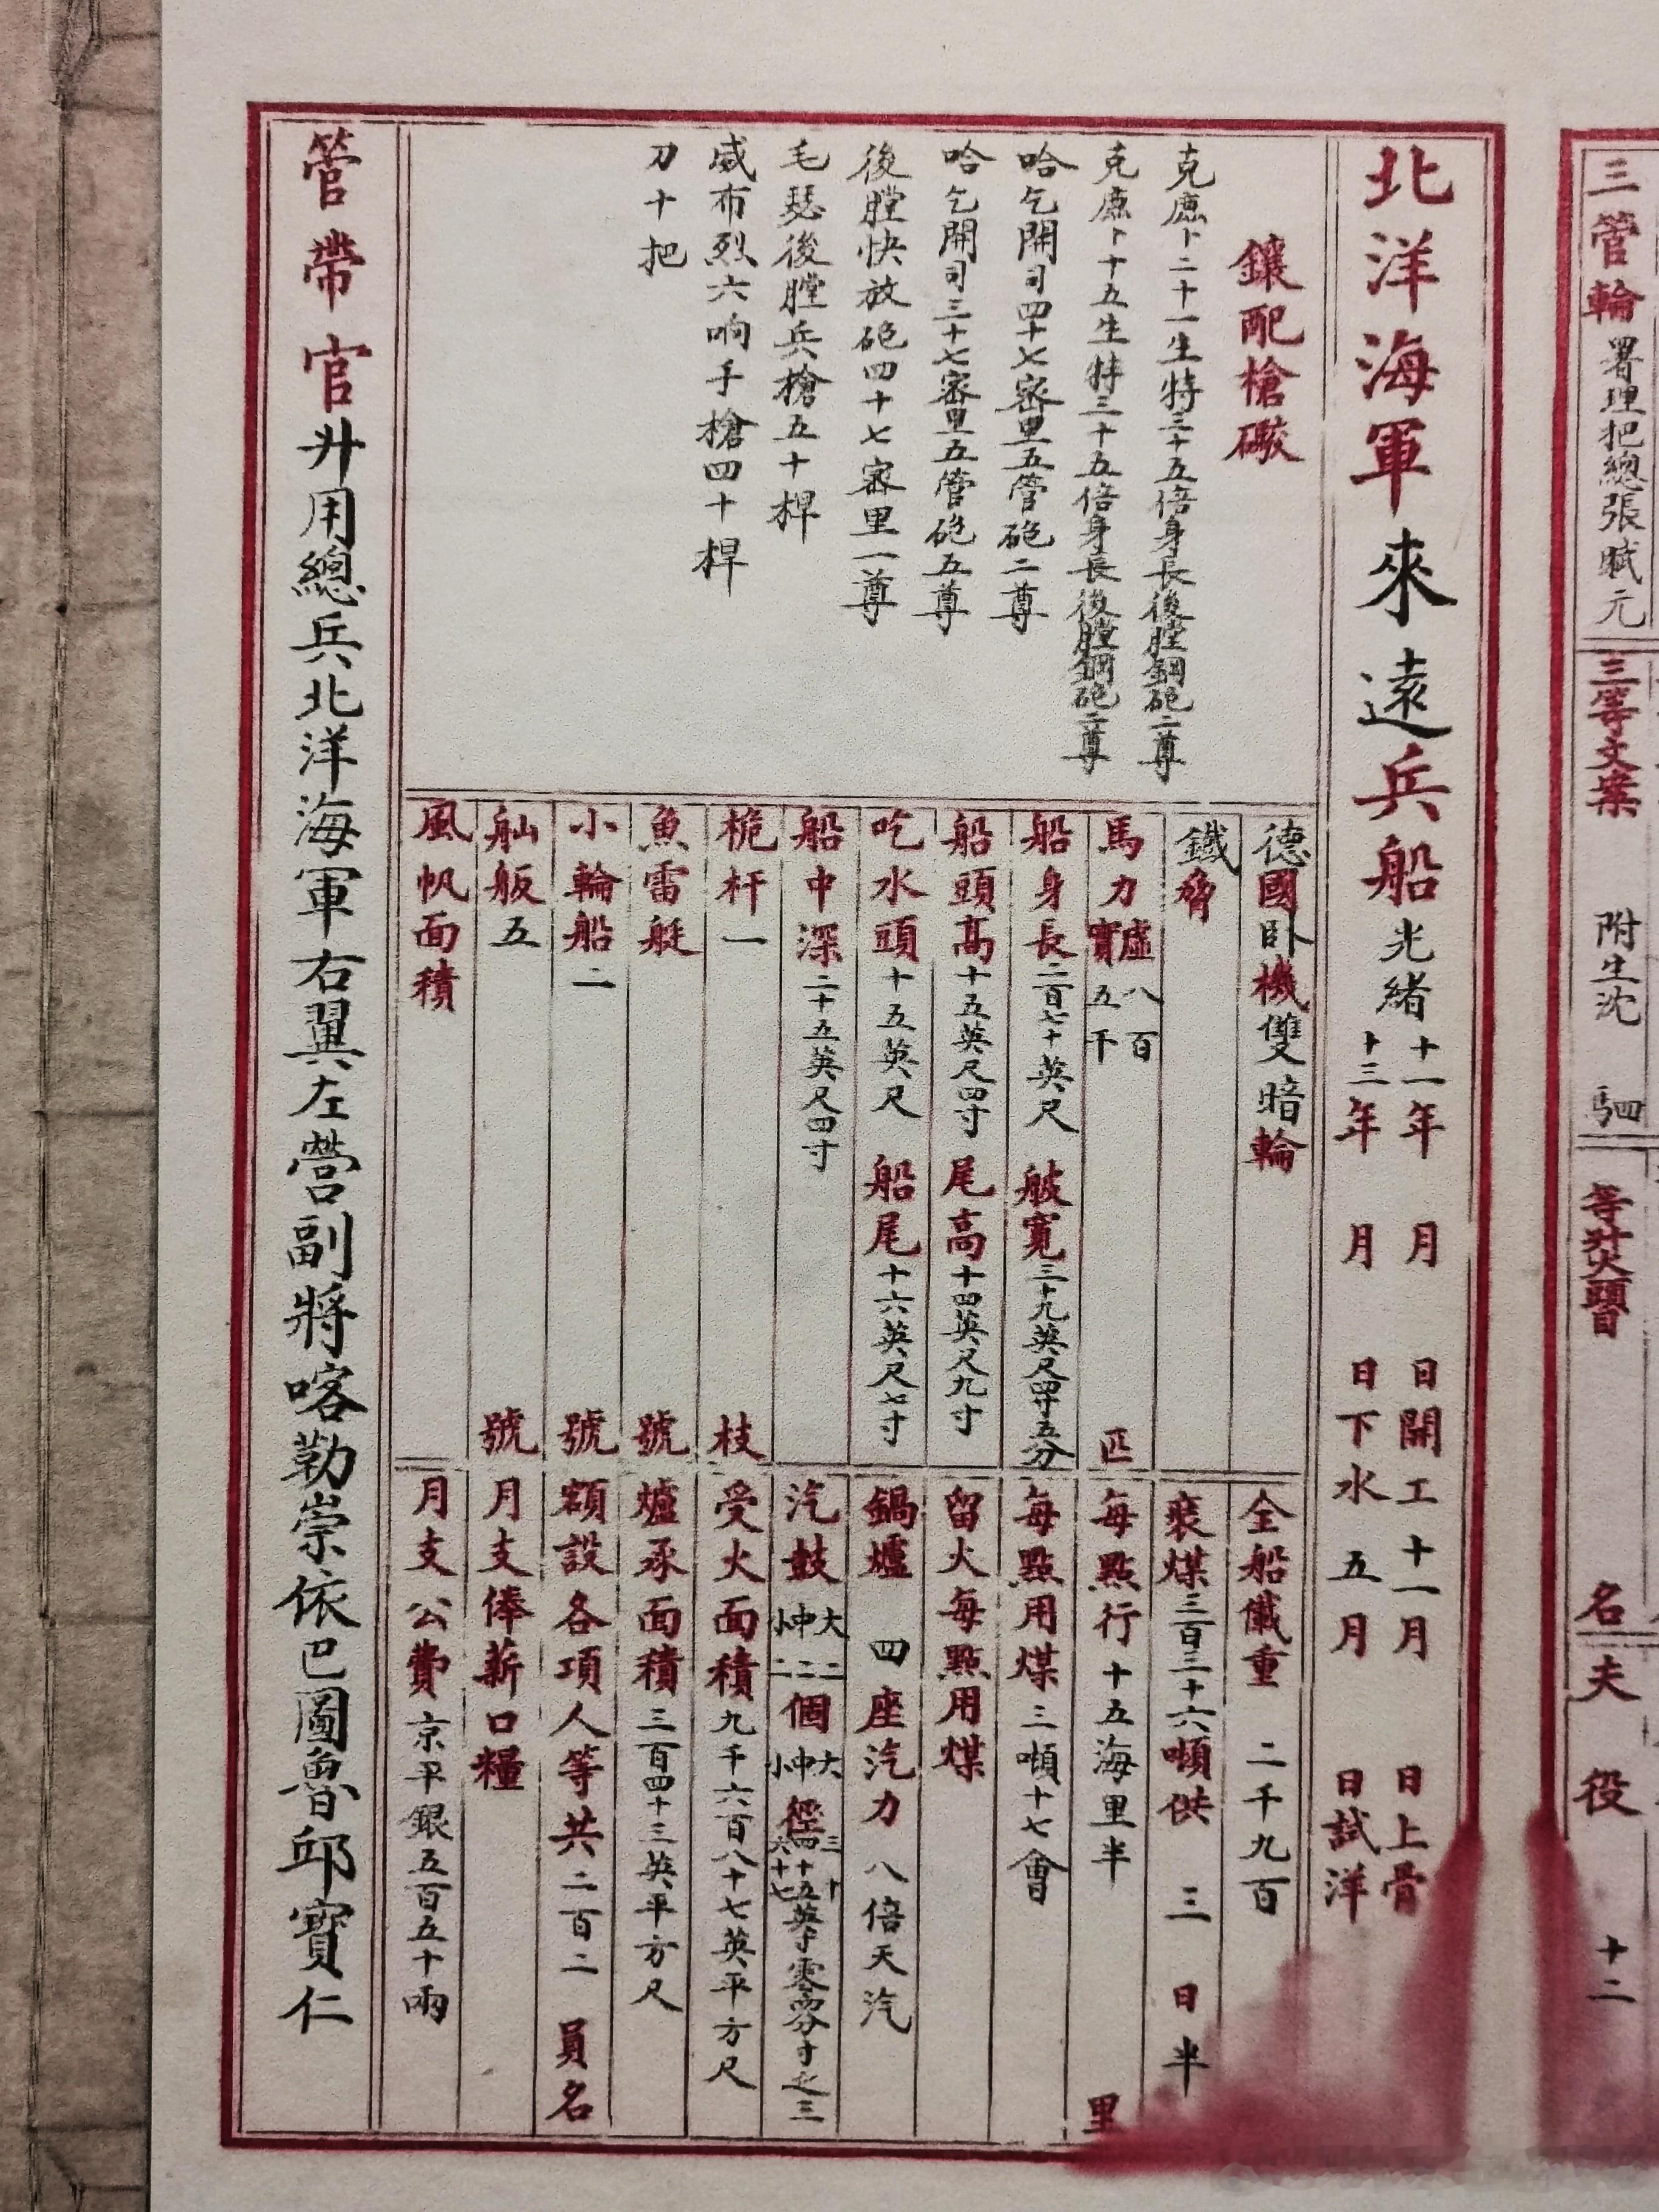 三管輪署理把總張斌元
三等文案 附生沈 駟
等升火頭目 名
夫役 十二
北洋海軍來遠兵船光緒
十一年 月 日開工十一月 日上骨
十三年 月 日下水五月 日試洋
鑲配槍礮
克鹿卜二十一生特三十五倍身長後膛鋼砲二尊
克鹿卜十五生特三十五倍身長後膛鋼砲二尊
哈乞開司四十七密里五管砲二尊
哈乞開司三十七密里五管砲五尊
後膛快放砲四十七密里一尊
毛瑟後膛兵槍五十桿
威布烈六响手槍四十桿
刀十把
德國卧機雙暗輪
鐵脅
馬力虛八百實五千 匹
船身長二百七十英尺 艙寬三十九英尺四寸五分
船頭高十五英尺四寸 尾高十四英尺九寸
吃水頭十五英尺 船尾十六英尺七寸
船中深二十五英尺四寸
桅杆一 枝
魚雷艇 號
小輪船二 號
舢舨五 號
風帆面積
全船儎重 二千九百
裝煤三百三十六噸供 三 日半
每點行十五海里半 里
每點用煤三噸十七會
留火每點用煤
鍋爐 四座汽力 八倍天汽
汽鼓大二中二小二個大中小徑三十四十五六十七英寸零四分寸之三
受火面積九千六百八十七英平方尺
爐承面積三百四十三英平方尺
額設各項人等共二百二 員名
月支俸薪口糧
月支公費京平銀五百五十兩
管帶官升用總兵北洋海軍右翼左營副將喀勒崇依巴圖魯邱寶仁